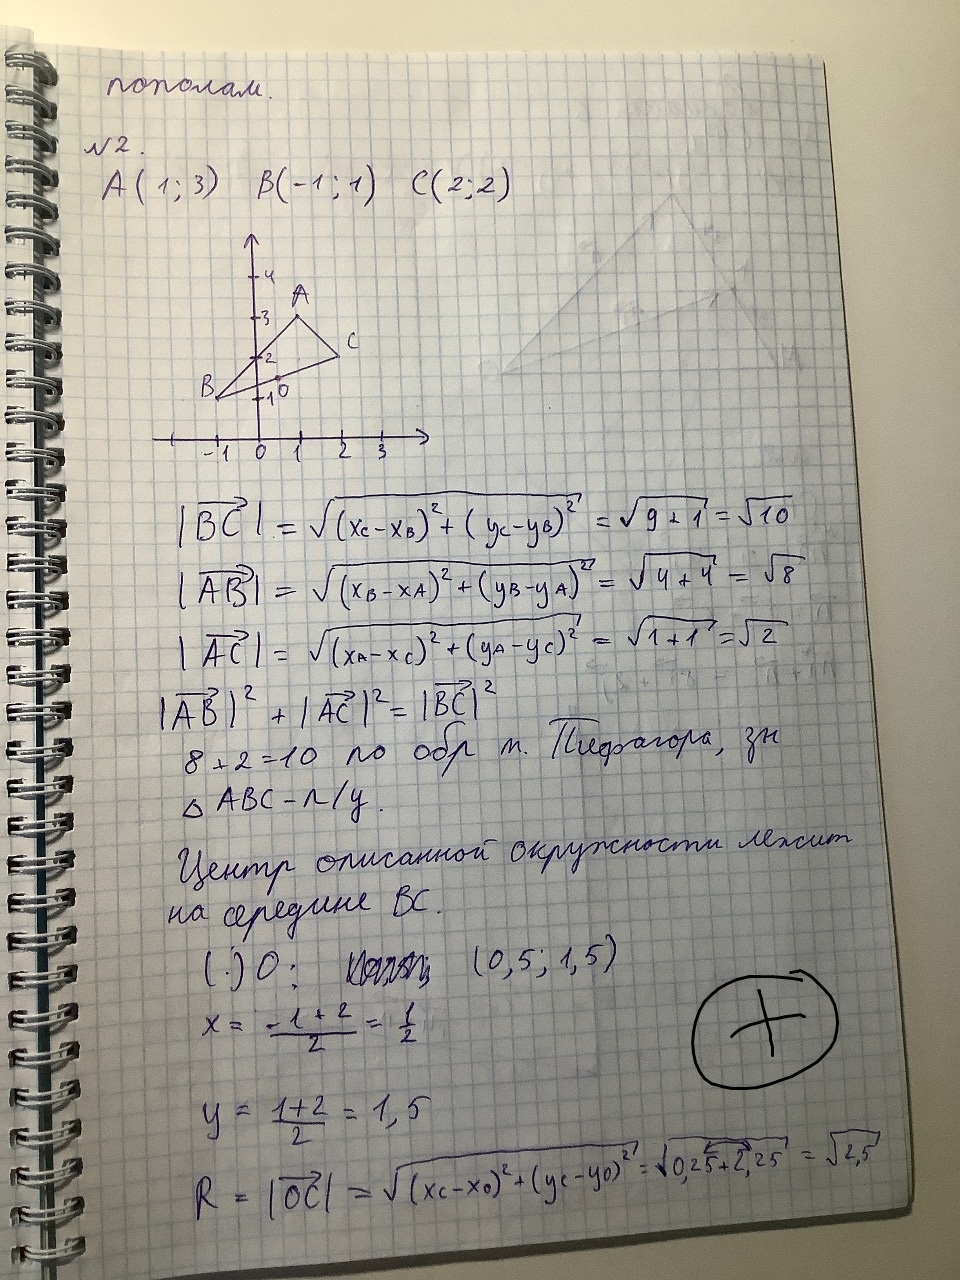 пополам.
№2.
A(1;3) B(-1;1) C(2;2)
4
A
3
C
2
B
O
1
-1 0 1 2 3
|BC| = √((xC-xB)²+(yC-yB)²) = √(9+1) = √10
|AB| = √((xB-xA)²+(yB-yA)²) = √(4+4) = √8
|AC| = √((xA-xC)²+(yA-yC)²) = √(1+1) = √2
|AB|² + |AC|² = |BC|²
8+2=10 по обр т. Пифагора, зн
△ABC - п/у.
Центр описанной окружности лежит
на середине BC.
(·)O: (0,5; 1,5)
x = (-1+2)/2 = 1/2
+
y = (1+2)/2 = 1,5
R = |OC| = √((xC-xO)²+(yC-yO)²) = √(0,25+2,25) = √2,5